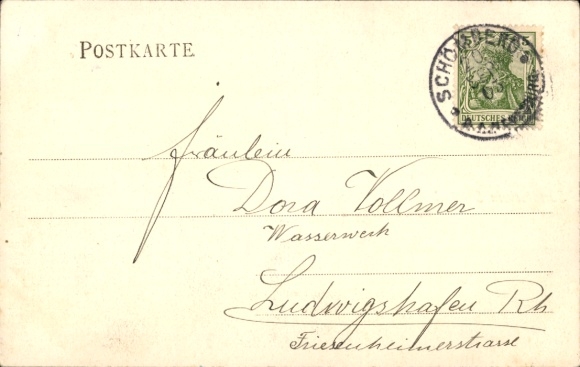 POSTKARTE
SCHÖMBERG
03
DEUTSCHES REICH
Fräulein
Dora Vollmer
Wasserwerk
Ludwigshafen Rh
Friesenheimerstrasse